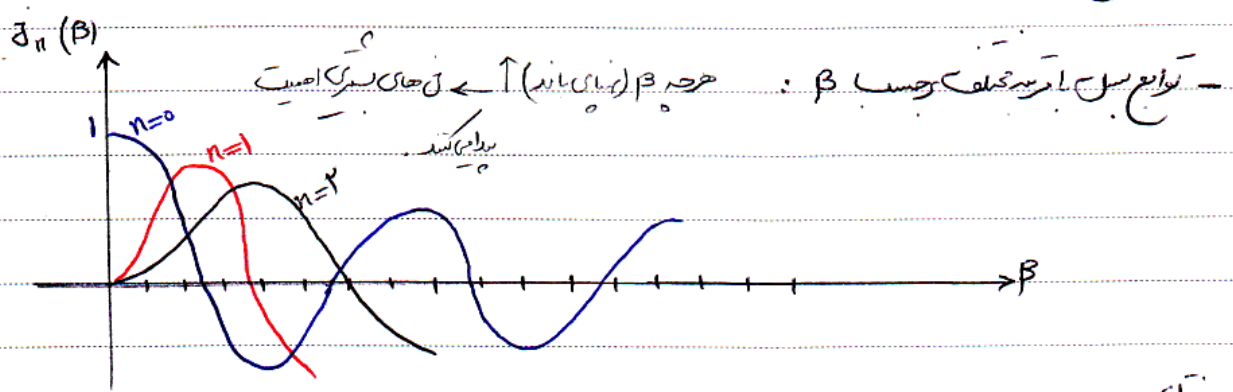 J_n (β)
– توابع بسل با مرتبه مختلف برحسب β : هرچه β (پهنای باند) ↑ ← n های بیشتری اهمیت
پیدا می کنند .
1 n=0
n=1
n=۲
β